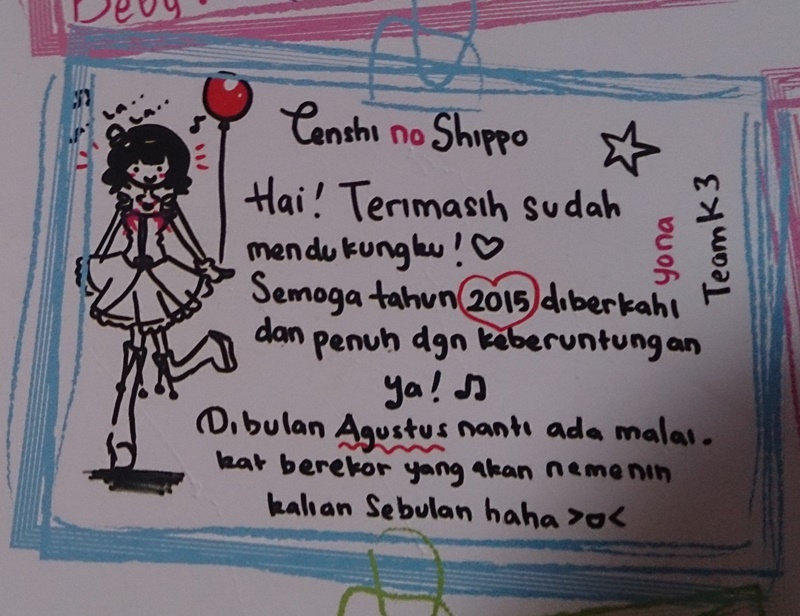 Deby
La...
La...
Tenshi no Shippo
Hai! Terimasih sudah
mendukungku! ♡
Semoga tahun 2015 diberkahi
dan penuh dgn keberuntungan
ya! ♫
Dibulan Agustus nanti ada malai.
kat berekor yang akan nemenin
kalian Sebulan haha >o<
yona
TeamK3